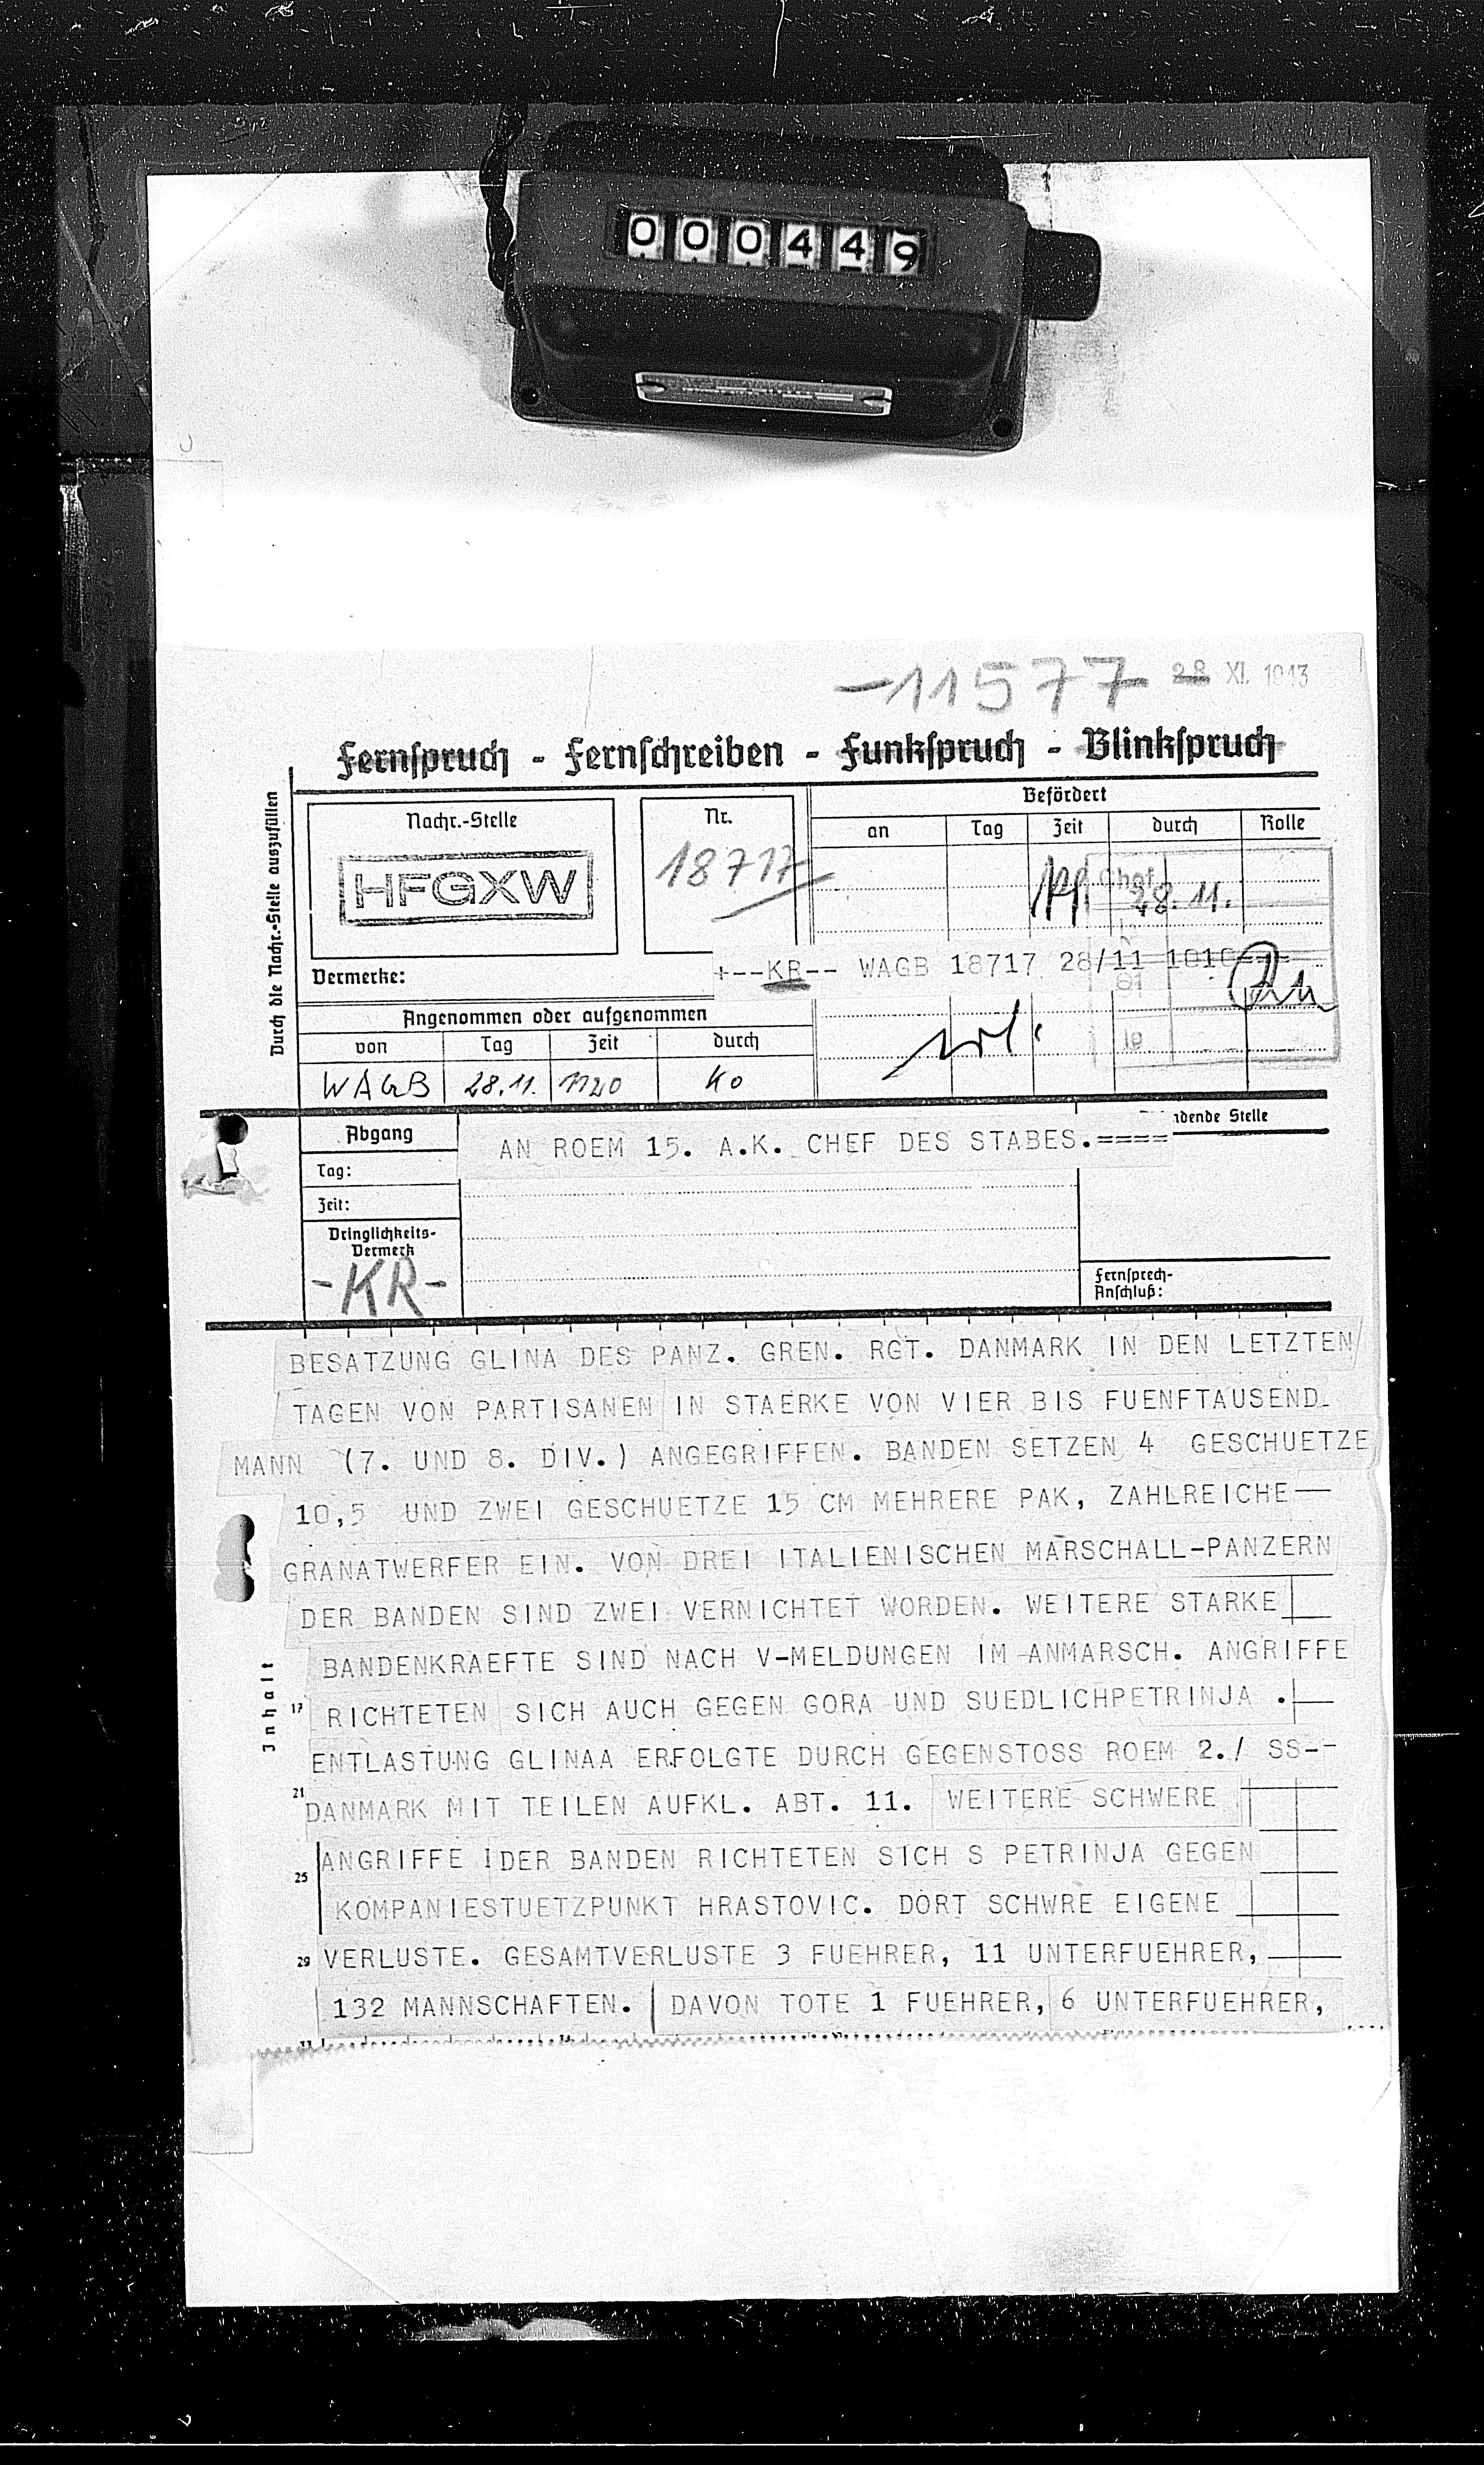 000449
-11577- 28 XI. 1943
Fernspruch - Fernschreiben - Funkspruch - Blinkspruch
Durch die Nachr.-Stelle auszufüllen
Nachr.-Stelle
HFGXW
Nr.
18717
Befördert
an Tag Zeit durch Rolle
Chef
28.11.
Vermerke:
+--KR-- WAGB 18717 28/11 1010
Angenommen oder aufgenommen
von Tag Zeit durch
WAGB 28.11. 1120 Ko
Abgang
Tag:
Zeit:
Dringlichkeits-
Vermerk
-KR-
AN ROEM 15. A.K. CHEF DES STABES.====
ndende Stelle
Fernsprech-
Anschluß:
Inhalt
BESATZUNG GLINA DES PANZ. GREN. RGT. DANMARK IN DEN LETZTEN
TAGEN VON PARTISANEN IN STAERKE VON VIER BIS FUENFTAUSEND
MANN (7. UND 8. DIV.) ANGEGRIFFEN. BANDEN SETZEN 4 GESCHUETZE
10,5 UND ZWEI GESCHUETZE 15 CM MEHRERE PAK, ZAHLREICHE
GRANATWERFER EIN. VON DREI ITALIENISCHEN MARSCHALL-PANZERN
DER BANDEN SIND ZWEI VERNICHTET WORDEN. WEITERE STARKE
BANDENKRAEFTE SIND NACH V-MELDUNGEN IM ANMARSCH. ANGRIFFE
17 RICHTETEN SICH AUCH GEGEN GORA UND SUEDLICHPETRINJA .
ENTLASTUNG GLINAA ERFOLGTE DURCH GEGENSTOSS ROEM 2./ SS--
21 DANMARK MIT TEILEN AUFKL. ABT. 11. WEITERE SCHWERE
ANGRIFFE DER BANDEN RICHTETEN SICH S PETRINJA GEGEN
25 KOMPANIESTUETZPUNKT HRASTOVIC. DORT SCHWRE EIGENE
29 VERLUSTE. GESAMTVERLUSTE 3 FUEHRER, 11 UNTERFUEHRER,
132 MANNSCHAFTEN. DAVON TOTE 1 FUEHRER, 6 UNTERFUEHRER,